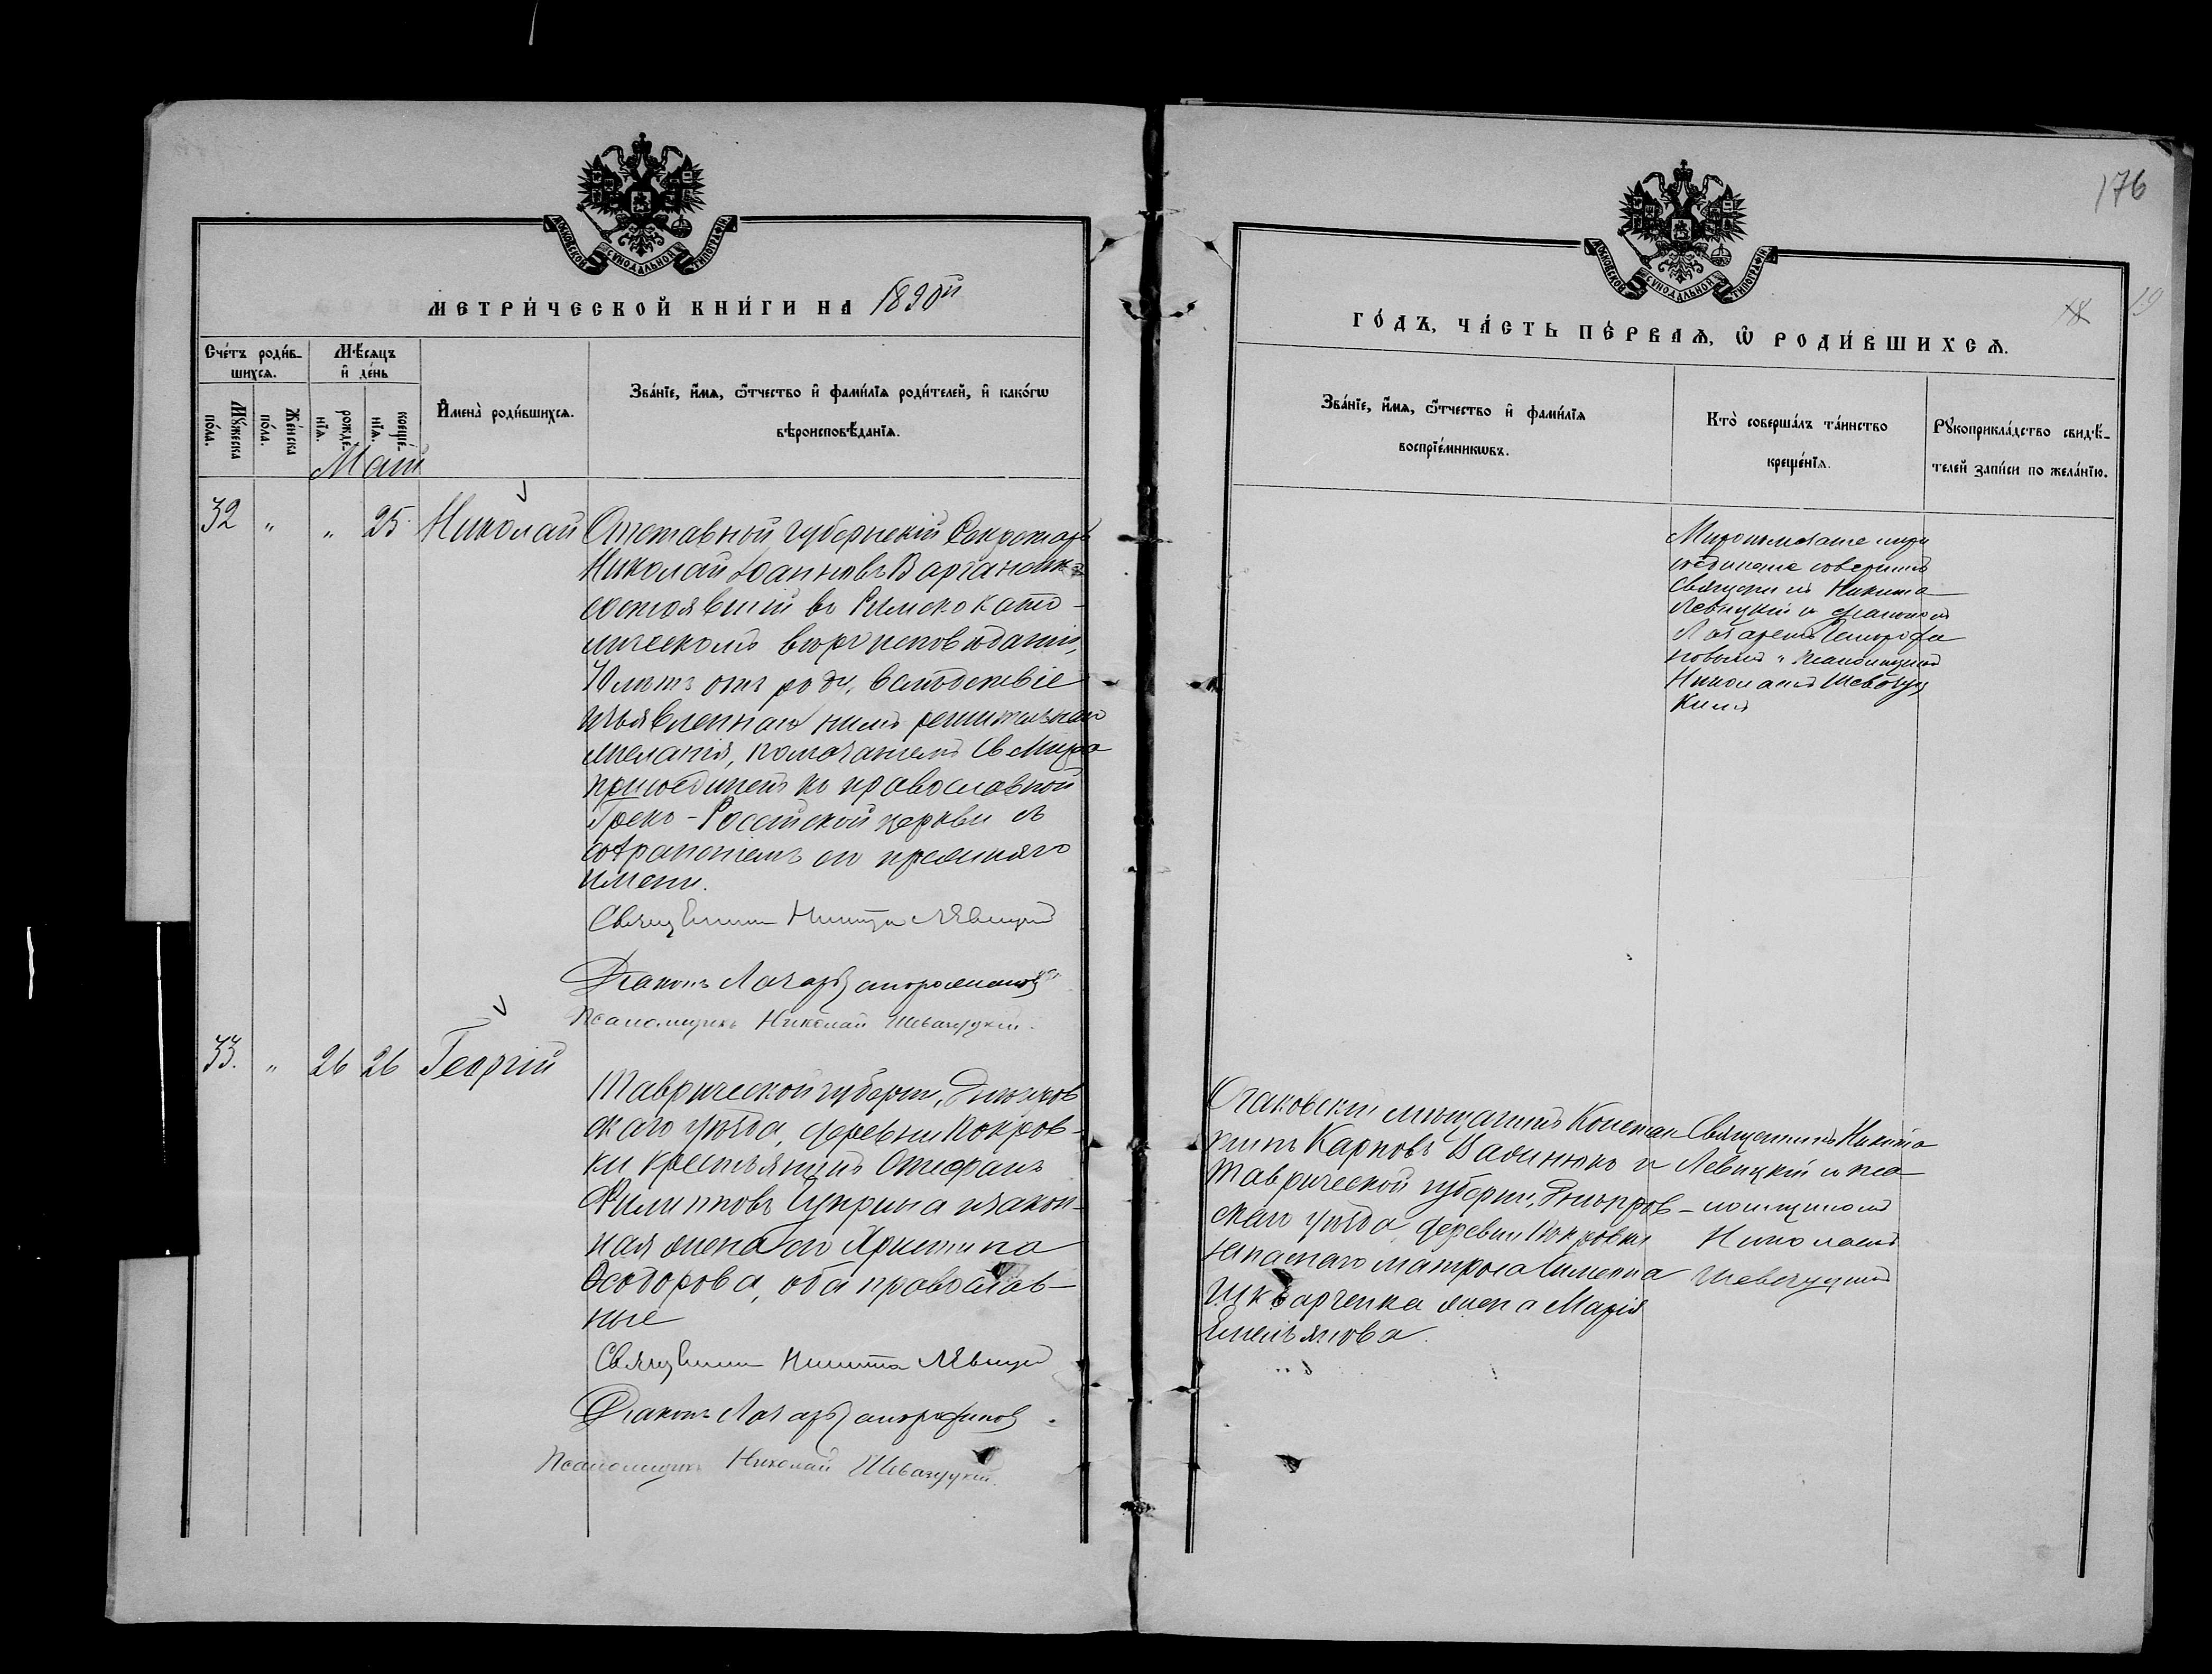 176
МОСКОВСКОЙ СѴНОДАЛЬНОЙ ТИПОГРАФІИ
МЕТРИ́ЧЕСКОЙ КНИ́ГИ НА 1890й
Сче́тъ роди́в-
шихсѧ.
Мѣ́сѧцъ
и҆ де́нь
Мꙋ́жеска
по́ла.
Же́нска
по́ла.
рожде́-
нїѧ.
креще́-
нїѧ.
И҆мена̀ роди́вшихсѧ.
Зва́нїе, и҆́мѧ, ѻ҆́тчество и҆ фами́лїѧ роди́телей, и҆ како́гѡ
вѣроисповѣ́данїѧ.
Май
32 " " 25 Николай
Отставной Губернскій Секретарь
Николай Іоанновъ
состоявшій въ Римско като-
лическомъ вѣроисповѣданіи,
70 лѣтъ отъ роду, вслѣдствіе
изъявленнаго нимъ решительнаго
желанія, помазаніемъ Св Мира
присоединенъ къ православной
Греко-Россійской церкви съ
сохраненіемъ его прежняго
имени.
Священникъ Никита Левицкій
Діаконъ Лазарь
Псаломщикъ Николай
33. " 26 26 Георгій
Таврической губерніи, Днѣпров
скаго уѣзда, деревни Покров-
ки крестьянинъ Стефанъ
Филипповъ Чуприна и закон-
ная жена его Христина
Ѳеодорова, оба православ-
ные
Священникъ Никита Левицкій
Діаконъ Лазарь
Псаломщикъ Николай
МОСКОВСКОЙ СѴНОДАЛЬНОЙ ТИПОГРАФІИ
18 19
ГО́ДЪ, ЧА́СТЬ ПЕ́РВАѦ, Ѡ҆ РОДИ́ВШИХСѦ.
Зва́нїе, и҆́мѧ, ѻ҆́тчество и҆ фами́лїѧ
воспрїе́мникѡвъ.
Кто̀ соверша́лъ та́инство
креще́нїѧ.
Рꙋкоприкла́дство свидѣ́-
телей за́писи по жела́нїю.
Миропомазаніе при
соединеніе совершилъ
Священникъ Никита
Левицкій съ діакономъ
Лазаремъ
псаломщикомъ
Николаемъ
Очаковскій мѣщанинъ Констан
тинъ Карповъ и
Таврической губерніи, Днѣпров-
скаго уѣзда, деревни Покровки
запаснаго матроса Симеона
Шкварченка жена Марія
Емельянова.
Священникъ Никита
Левицкій и пса-
ломщикомъ
Николаемъ